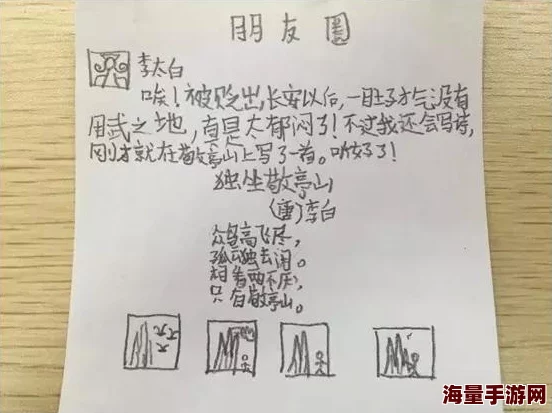 朋友圈
李太白
唉！被贬出长安以后，一肚子才气没有
用武之地，真是太郁闷了！不过我还会写诗，
刚才就在敬亭山上写了一首。听好了！
独坐敬亭山
（唐）李白
众鸟高飞尽，
孤云独去闲。
相看两不厌，
只有敬亭山。
海量手游网